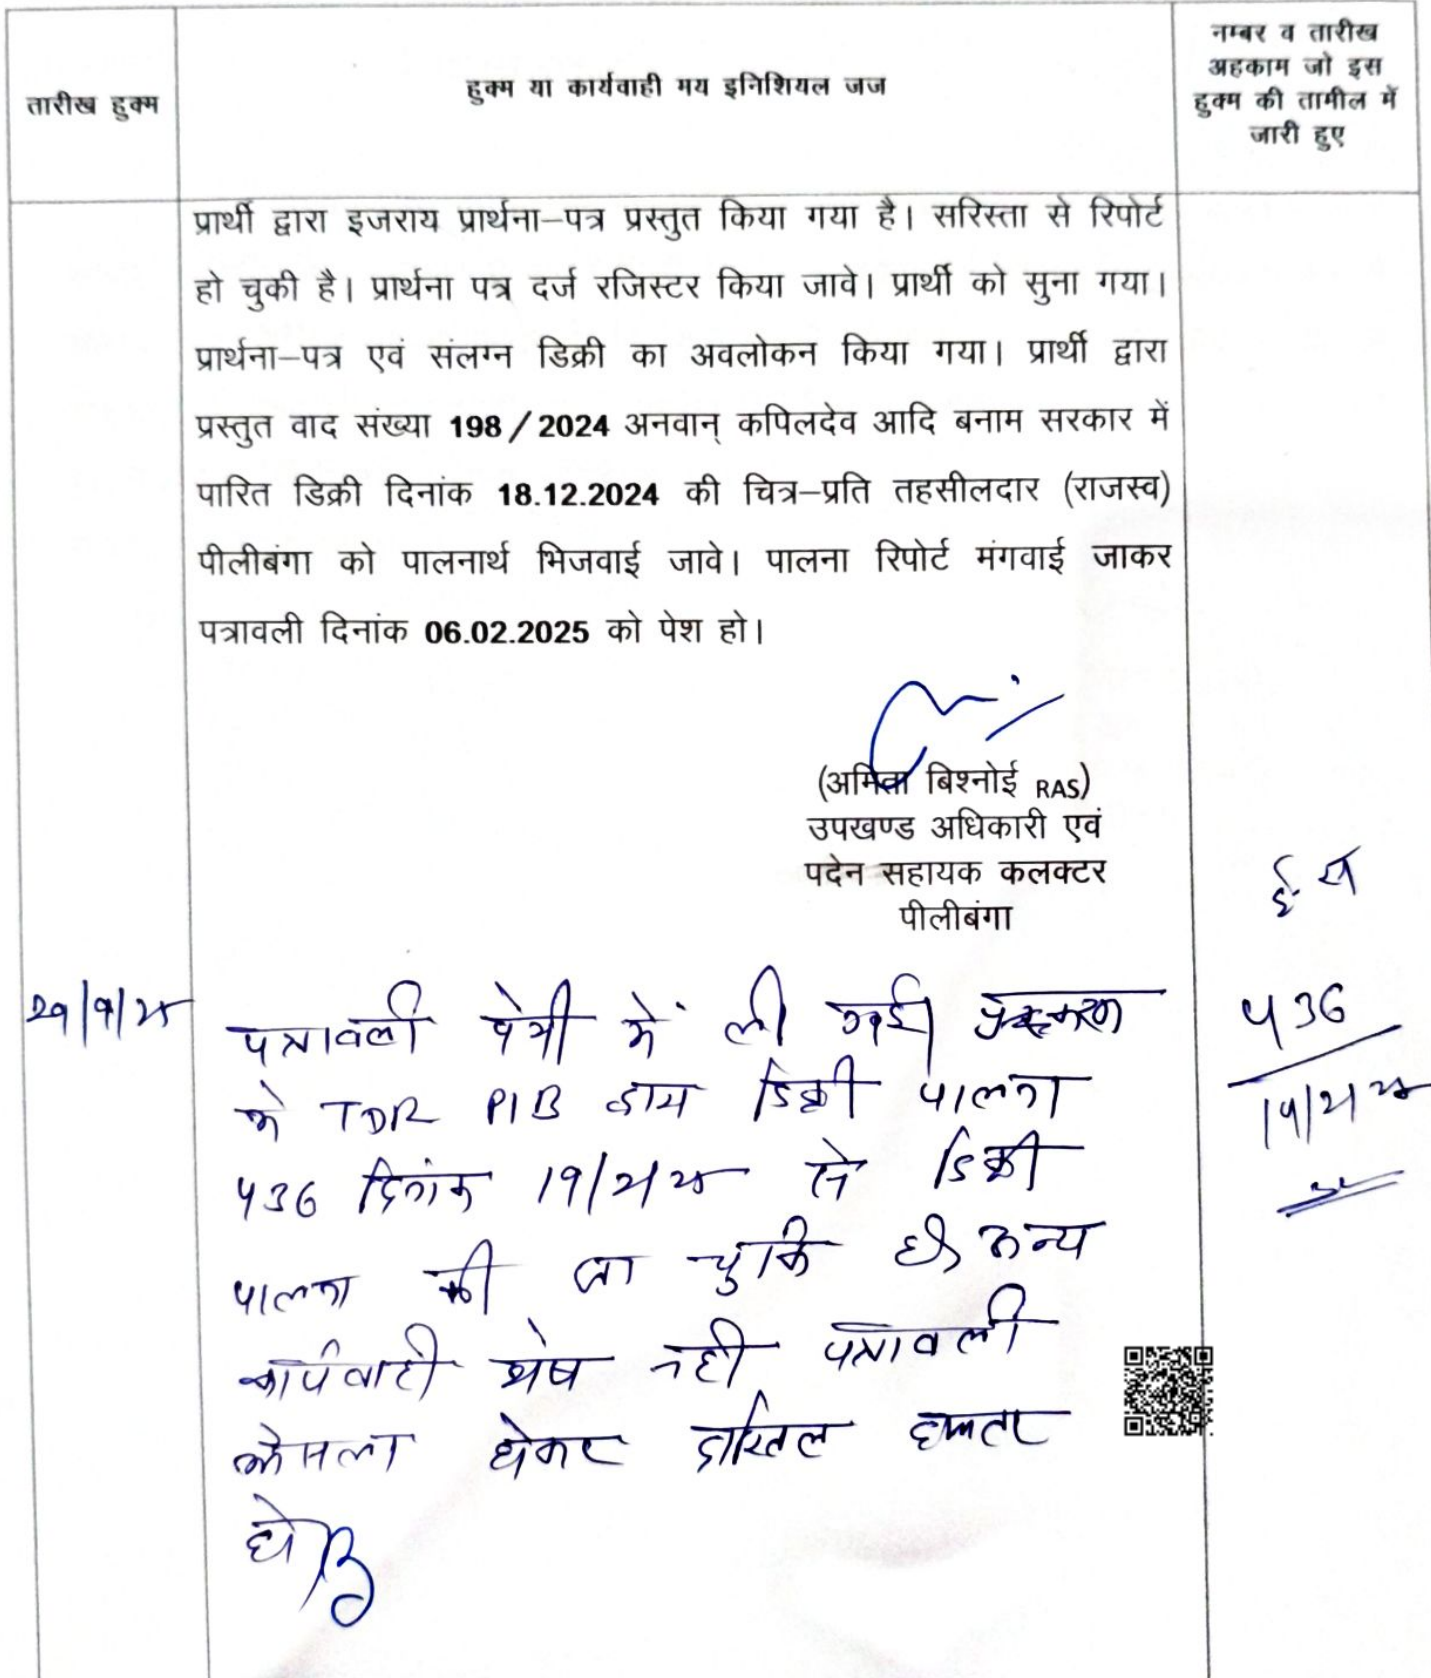 तारीख हुक्म
हुक्म या कार्यवाही मय इनिशियल जज
नम्बर व तारीख
अहकाम जो इस
हुक्म की तामील में
जारी हुए
प्रार्थी द्वारा इजराय प्रार्थना–पत्र प्रस्तुत किया गया है। सरिस्ता से रिपोर्ट
हो चुकी है। प्रार्थना पत्र दर्ज रजिस्टर किया जावे। प्रार्थी को सुना गया।
प्रार्थना–पत्र एवं संलग्न डिक्री का अवलोकन किया गया। प्रार्थी द्वारा
प्रस्तुत वाद संख्या 198/2024 अनवान् कपिलदेव आदि बनाम सरकार में
पारित डिक्री दिनांक 18.12.2024 की चित्र–प्रति तहसीलदार (राजस्व)
पीलीबंगा को पालनार्थ भिजवाई जावे। पालना रिपोर्ट मंगवाई जाकर
पत्रावली दिनांक 06.02.2025 को पेश हो।
(अमिता बिश्नोई RAS)
उपखण्ड अधिकारी एवं
पदेन सहायक कलक्टर
पीलीबंगा
पत्रावली पेशी में ली गई। प्रकरण
में TDR PIB द्वारा डिक्री पालना
436 दिनांक 19/2/25 से डिक्री
पालना की जा चुकि है। अन्य
कार्यवाही शेष नही पत्रावली
फैसला होकर दाखिल दफ्तर
हो
436
19/2/25